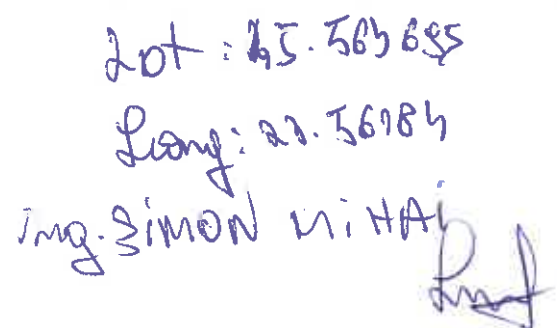 Lat: 45.564695
Long: 22.56184
ing. SIMON MIHAI